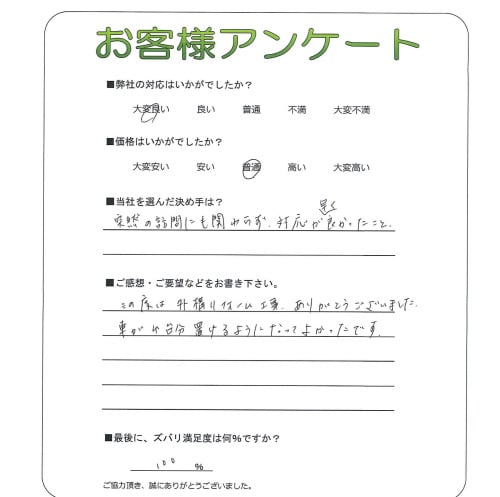 お客様アンケート
■弊社の対応はいかがでしたか？
大変良い 良い 普通 不満 大変不満
■価格はいかがでしたか？
大変安い 安い 普通 高い 大変高い
■当社を選んだ決め手は？
早く
突然の訪問にも関わらず、対応が良かったこと、
■ご感想・ご要望などをお書き下さい。
この度は外構リフォーム工事、ありがとうございました。
車が4台分置けるようになってよかったです。
■最後に、ズバリ満足度は何％ですか？
100 ％
ご協力頂き、誠にありがとうございました。